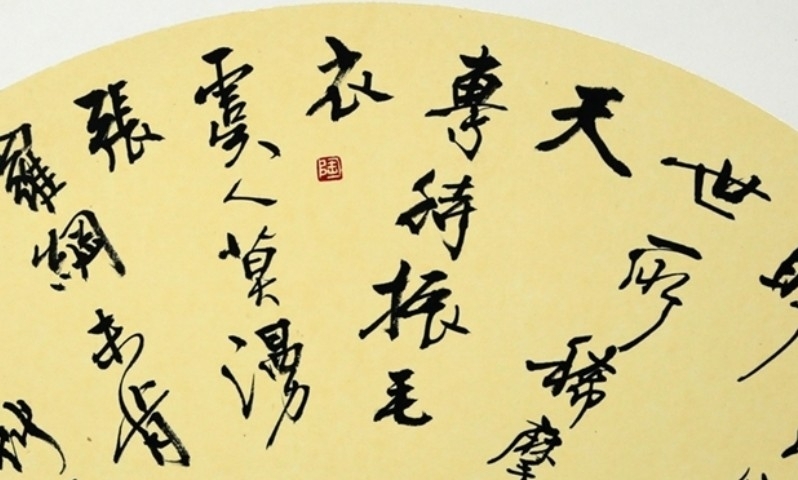 世所稀摩
天
專待振毛
衣
陶
虞人莫漫
張
羅網未肯